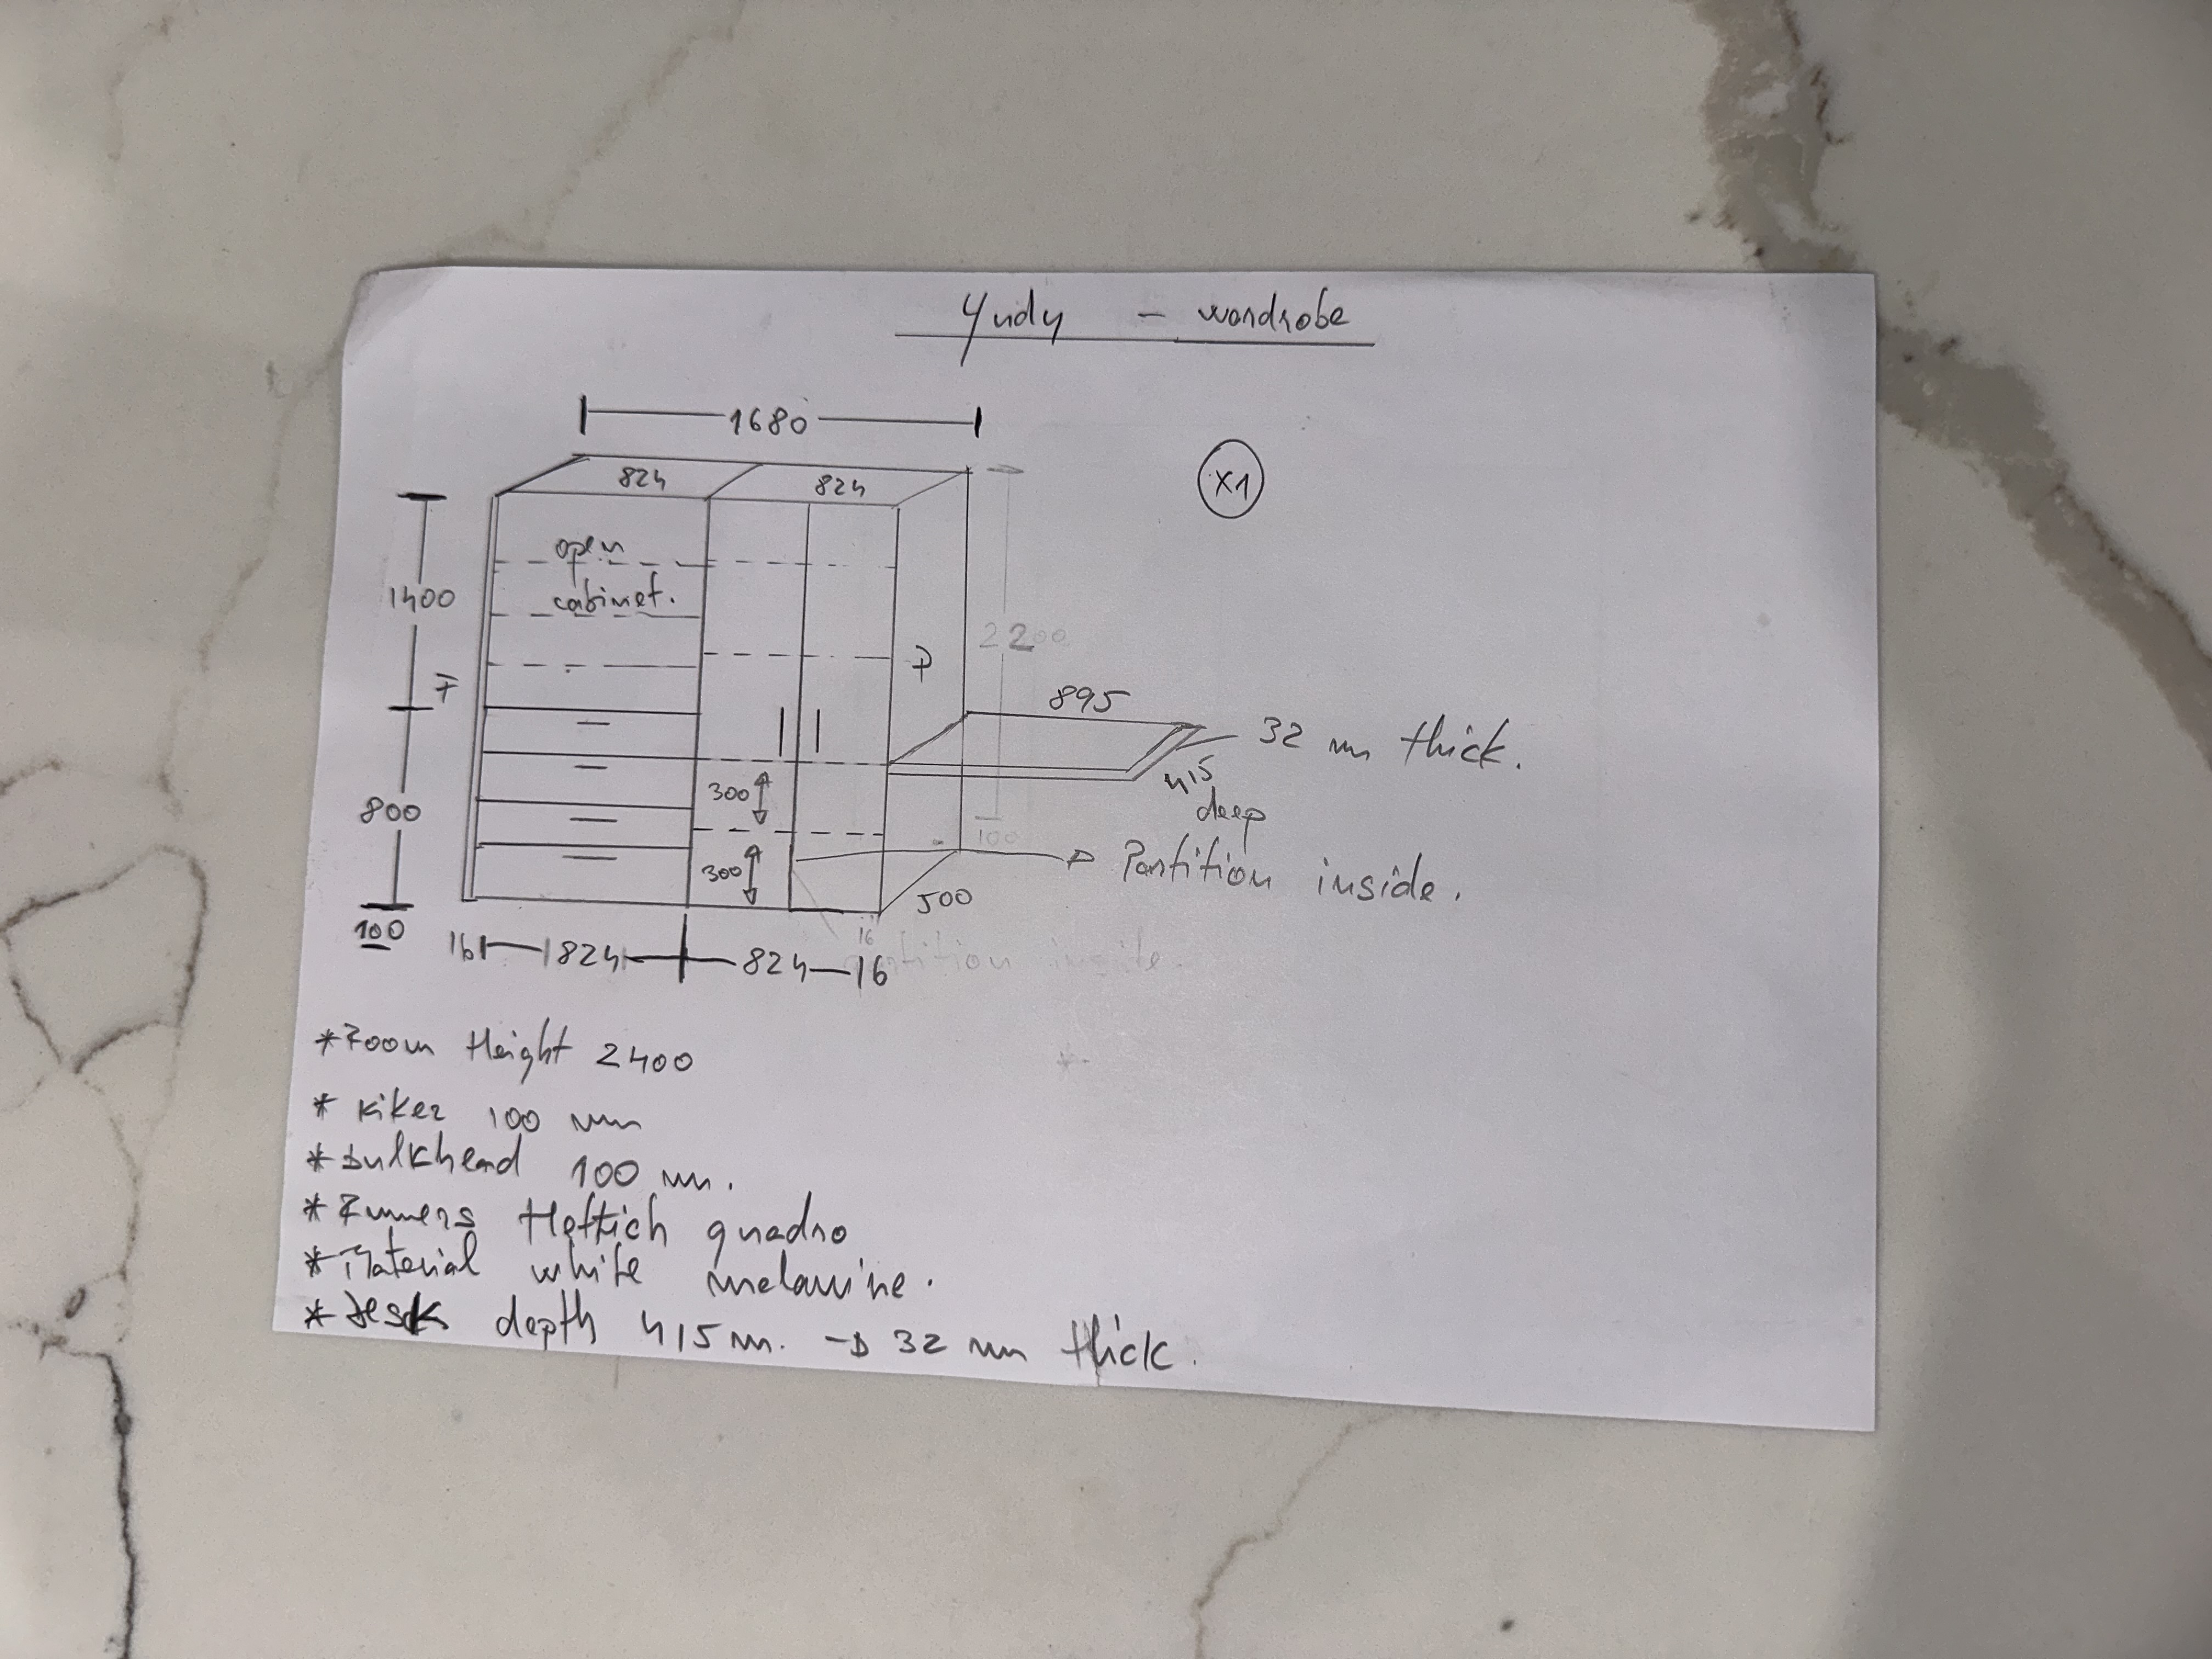 Yudy - wardrobe
1680
824 824
x1
open
cabinet.
1400
2200
F
P
895
32 mm thick.
415
deep
300
800
100
300
Partition inside.
500
100
16 824 824 16
16
partition inside.
* Room Height 2400
* Kiker 100 mm
* Bulkhead 100 mm.
* Runners Hettich quadro
* Material white melamine.
* Desk depth 415 m. → 32 mm thick.